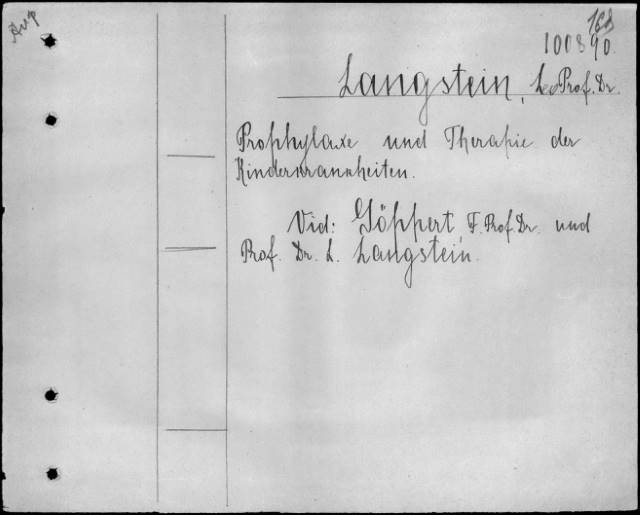 100890
Langstein, Leo Prof. Dr.
Prophylaxe und Therapie der
Kinderkrankheiten.
Vid: Göppert, F. Prof. Dr. und
Prof. Dr. L. Langstein.